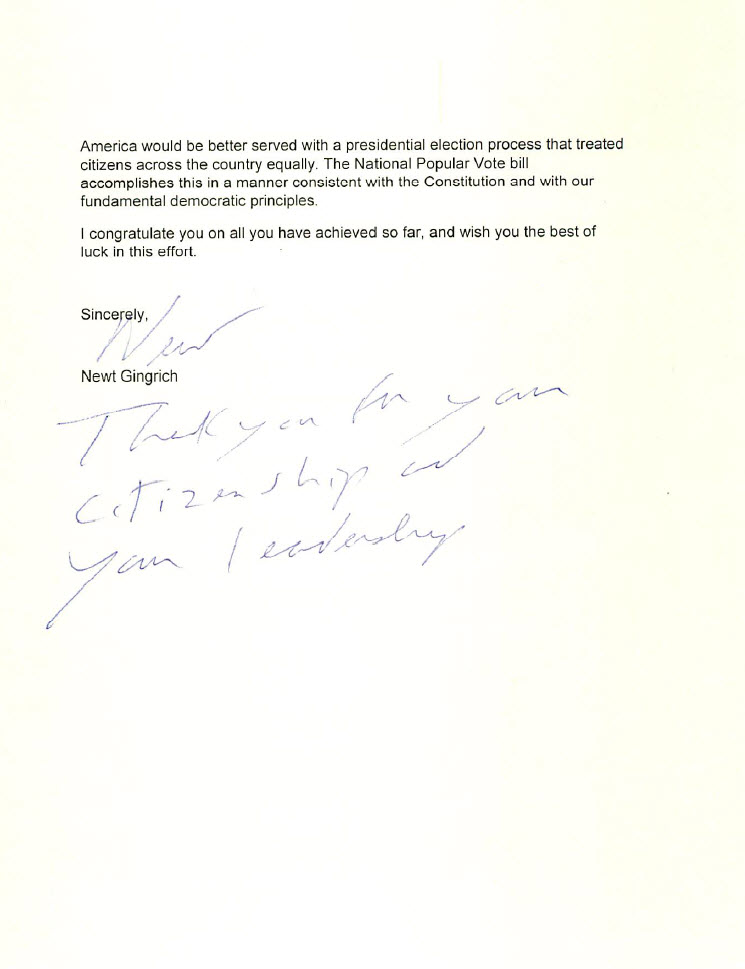 America would be better served with a presidential election process that treated
citizens across the country equally. The National Popular Vote bill
accomplishes this in a manner consistent with the Constitution and with our
fundamental democratic principles.
I congratulate you on all you have achieved so far, and wish you the best of
luck in this effort.
Sincerely,
Newt
Newt Gingrich
Thank you for your
citizenship and
your leadership